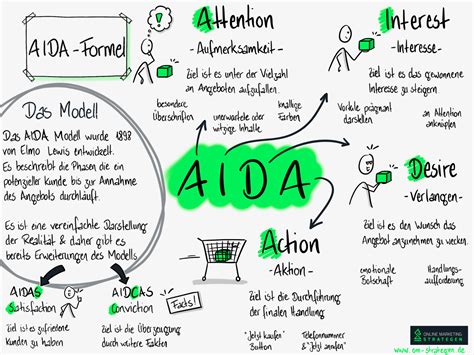 AIDA-Formel
Attention
- Aufmerksamkeit -
Ziel ist es unter der Vielzahl
an Angeboten aufzufallen.
besondere
Überschriften
unerwartete oder
witzige Inhalte
knallige
Farben
Interest
- Interesse -
Ziel ist es das gewonnene
Interesse zu steigern
Vorteile prägnant
darstellen
an Attention
anknüpfen
Das Modell
Das AIDA Modell wurde 1898
von Elmo Lewis entwickelt.
Es beschreibt die Phasen die ein
potenzieller Kunde bis zur Annahme
des Angebots durchläuft.
Es ist eine vereinfachte Darstellung
der Realität & daher gibt es
bereits Erweiterungen des Modells.
AIDA
Desire
- Verlangen -
Ziel ist es den Wunsch das
Angebot anzunehmen zu wecken.
emotionale
Botschaft
Handlungs-
aufforderung
Action
- Aktion -
Ziel ist die Durchführung
der finalen Handlung
"Jetzt kaufen"
Button
Telefonnummer
& "Jetzt anrufen"
AIDAS
Satisfaction
Ziel ist zufriedene
Kunden zu haben
AIDCAS
Conviction
Facts!
Ziel ist die Überzeugung
durch weitere Fakten
ONLINE MARKETING
STRATEGEN
www.om-strategen.de